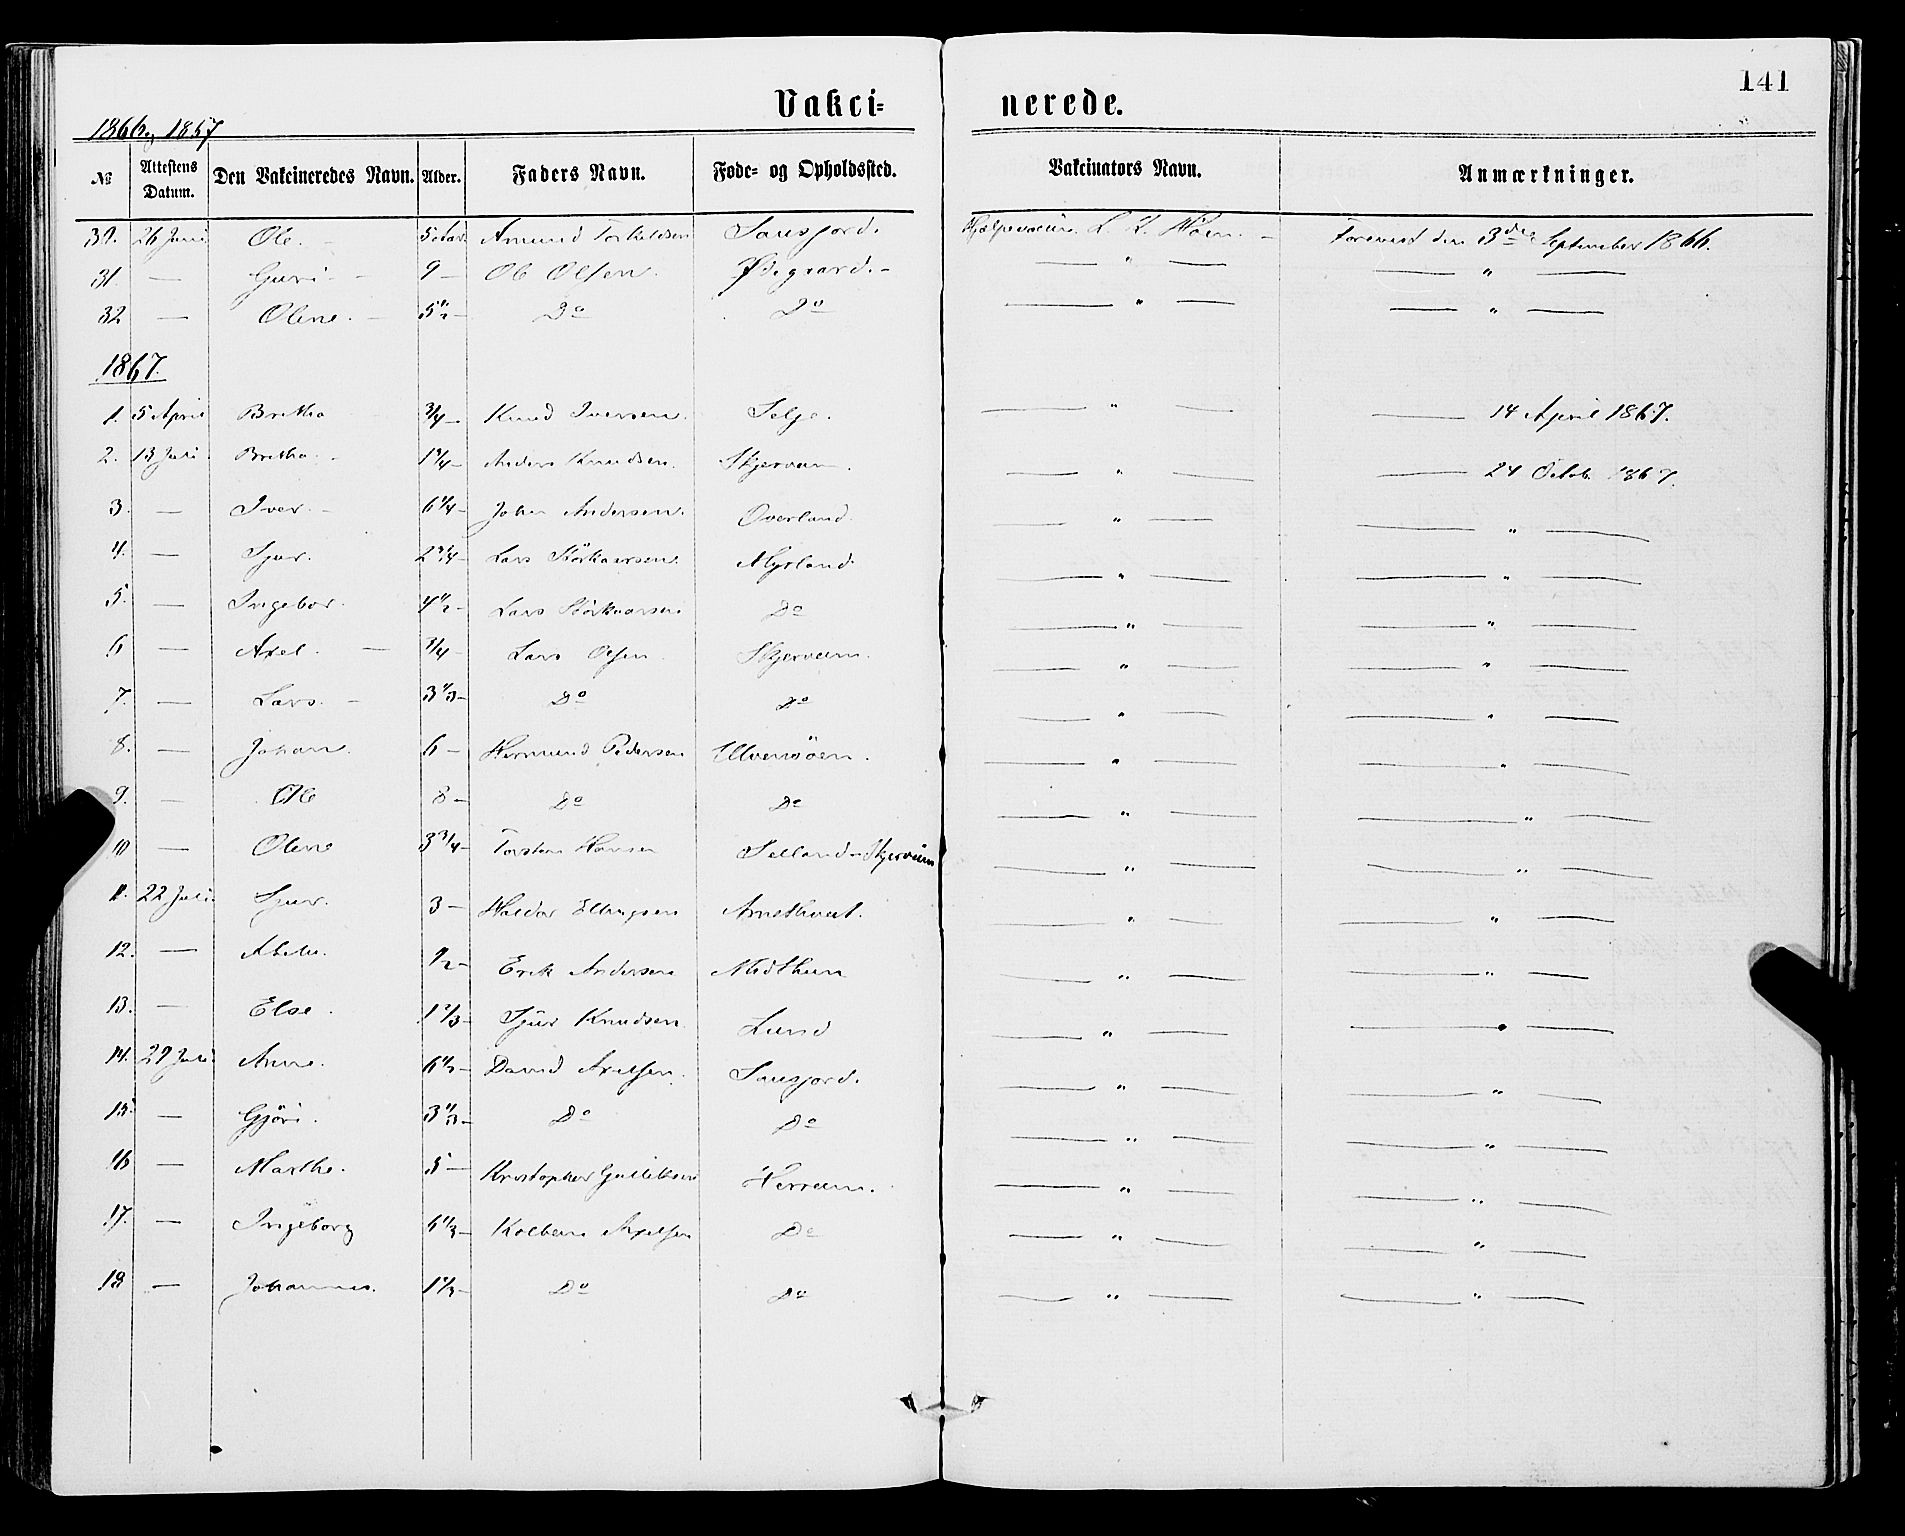 141
Vakci- nerede.
1866 og 1867
№ Attestens Datum. Den Vakcineredes Navn. Alder. Faders Navn. Føde- og Opholdssted. Vakcinators Navn. Anmærkninger.
30. 26 Juni Ole. - 5 Aar Amund Torkeldsen Sausjord. Hjelpevaccin. L. L. Høen. - Forevist den 3die September 1866.
31. — Guri - 9 — Ole Olsen. Ødegaard. - — " — — " —
32 — Olene. - 5 1/2 - Do Do — " — — " —
1867.
1. 5 April Britha 3/4 - Knud Iversen. Selje. — " — — 14 April 1867.
2. 13 Juli Britha. - 1 3/4 - Anders Knudsen. Skjerven. — " — — 24 Octob. 1867.
3. — Iver. - 6 1/4 - Johan Andersen. Overland. — " — — " —
4. — Sjur. 2 3/4 - Lars Störkaarsen. Myrland. — " — — " —
5. — Ingebor. 4 1/2 - Lars Störkaarsen Do — " — — " —
6 — Axel. — 3/4 - Lars Olsen. Skjerveum. — " — — " —
7. — Lars. - 3 1/3 - Do Do — " — — " —
8. — Johan. 6 — Hermund Pedersen — " — — " —
9. — Ole 8 - Do Do — " — — " —
10 — Olene 3 3/4 - Torsten Hansen Selland - Skjerveum — " — — " —
11. 22 Juli. Sjur. 3 — Haldor Ellingsen Arnethvet. — " — — " —
12. — 1/2 - Erik Andersen Midthun — " — — " —
13. — Else. 1 2/3 - Sjur Knudsen Lund — " — — " —
14. 29 Juli Anne. 6 1/2 - David Axelsen. Sausjord. — " — — " —
15. — Gjöri. 3 1/3 - Do Do — " — — " —
16 — Marthe. 5 — Kristopher Gulliksen Herreim. — " — — " —
17. — Ingeborg 6 1/3 - Kolbein Axelsen Do — " — — " —
18 — Johannes. 1 1/3 - Do Do — " — — " —